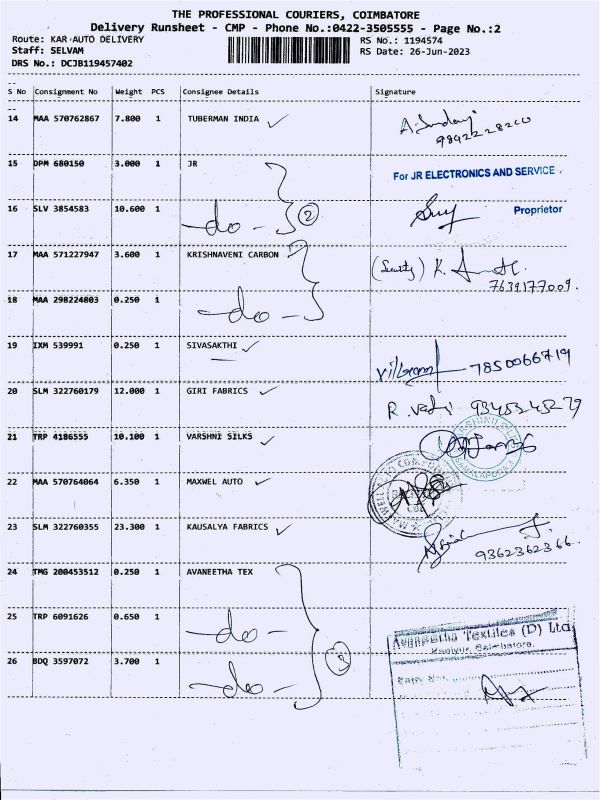 THE PROFESSIONAL COURIERS, COIMBATORE
Delivery Runsheet - CMP - Phone No.:0422-3505555 - Page No.:2
Route: KAR AUTO DELIVERY
RS No.: 1194574
Staff: SELVAM
RS Date: 26-Jun-2023
DRS No.: DCJB119457402
S No Consignment No Weight PCS Consignee Details Signature
14 MAA 570762867 7.800 1 TUBERMAN INDIA
15 DPM 680150 3.000 1 JR
For JR ELECTRONICS AND SERVICE
16 SLV 3854583 10.600 1 -do- 2
Proprietor
17 MAA 571227947 3.600 1 KRISHNAVENI CARBON
7639177009.
18 MAA 298224803 0.250 1 -do-
19 IXM 539991 0.250 1 SIVASAKTHI
7850066719
20 SLM 322760179 12.000 1 GIRI FABRICS
21 TRP 4186555 10.100 1 VARSHNI SILKS
22 MAA 570764064 6.350 1 MAXWEL AUTO
23 SLM 322760355 23.300 1 KAUSALYA FABRICS
9362362366.
24 TMG 200453512 0.250 1 AVANEETHA TEX
25 TRP 6091626 0.650 1 -do-
Textiles (D) Ltd
26 BDQ 3597072 3.700 1 -do- 3